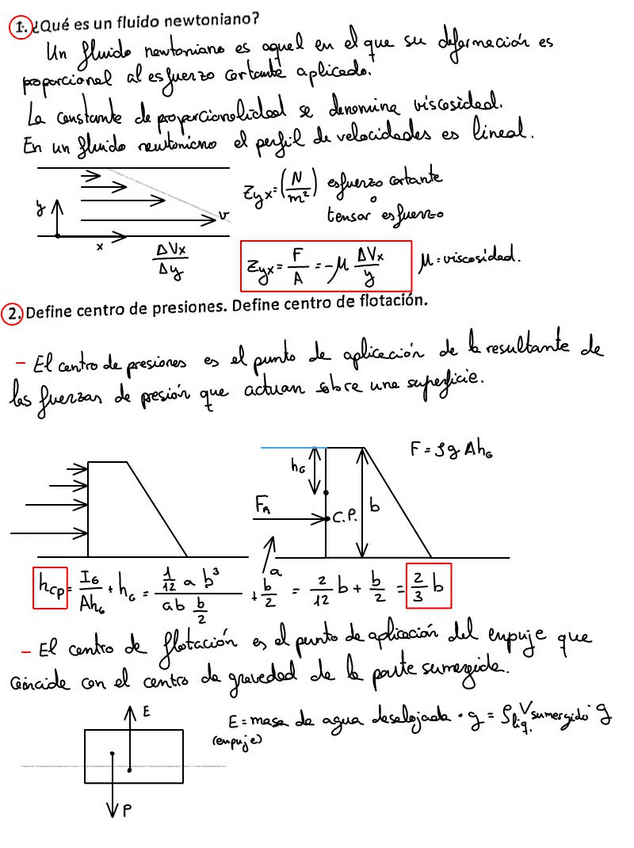 1. ¿Qué es un fluido newtoniano?
Un fluido newtoniano es aquel en el que su deformación es
proporcional al esfuerzo cortante aplicado.
La constante de proporcionalidad se denomina viscosidad.
En un fluido newtoniano el perfil de velocidades es lineal.
y x v
ΔVx/Δy
τyx = (N/m²) esfuerzo cortante
o
tensor esfuerzo
τyx = F/A = -μ ΔVx/y
μ = viscosidad.
2. Define centro de presiones. Define centro de flotación.
- El centro de presiones es el punto de aplicación de la resultante de
las fuerzas de presión que actuan sobre una superficie.
F = ρg AhG
hG
FA C.P. b
a
hcp = IG/AhG + hG = (1/12 a b³)/(ab b/2) + b/2 = 2/12 b + b/2 = 2/3 b
- El centro de flotación es el punto de aplicación del empuje que
coincide con el centro de gravedad de la parte sumergida.
E
E = masa de agua desalojada · g = ρliq. Vsumergido · g
(empuje)
P